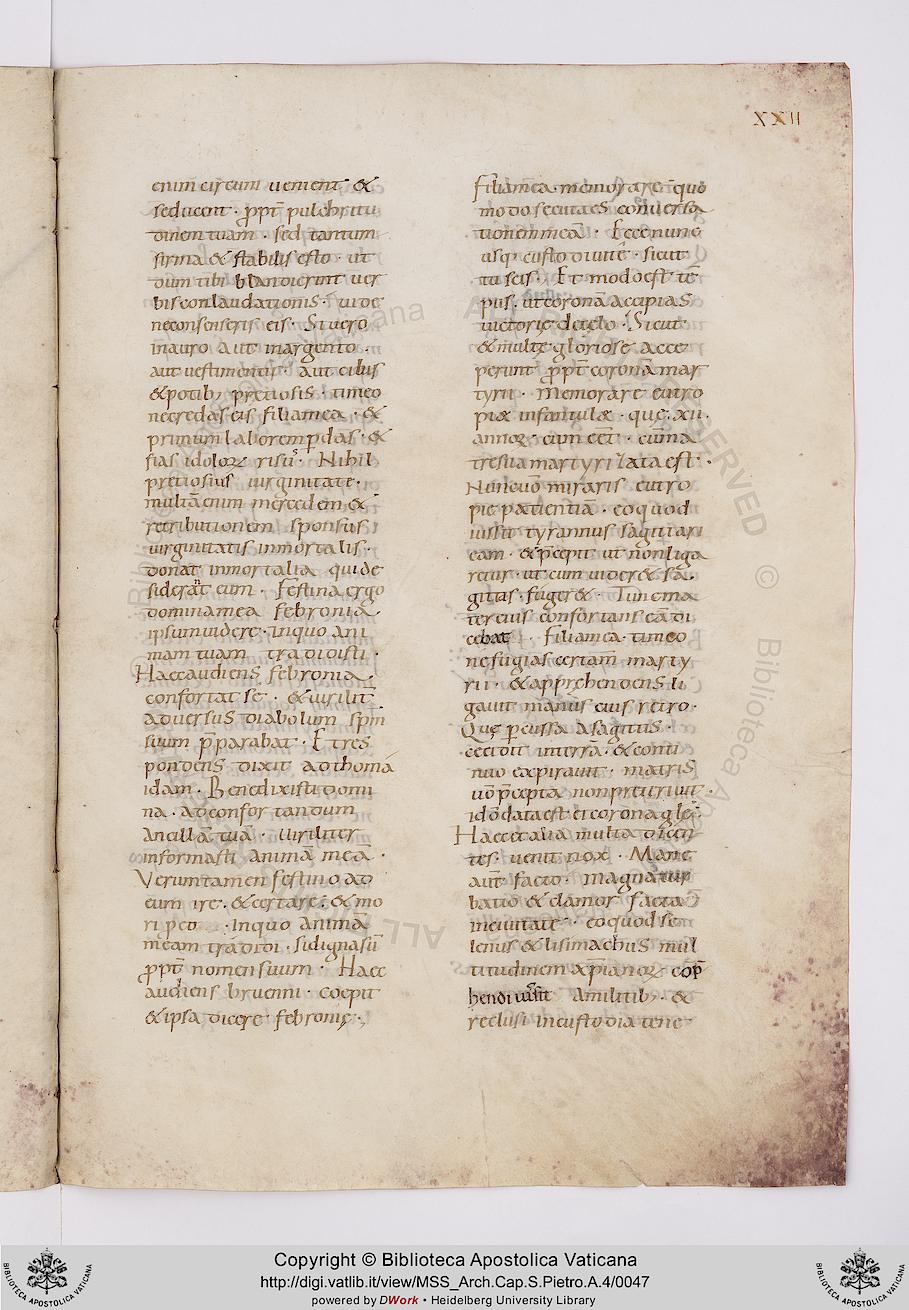 XXII
enim circum uenient &
seducent · ꝓpt̄ pulchritu
dinem tuam · sed tantum
firma & stabilis esto · ut
dum tibi blandierint uer
bis conlaudationis · uide
ne consenseris eis · Si uero
in auro aut in argento ·
aut uestimentis · aut cibus
& potib; pretiosis · timeo
ne credas eis filia mea · &
primum laborem perdas · &
fias idoloꝝ risus · Nihil
pretiosius uirginitate ·
multā enim mercedem &
retributionem sponsus
uirginitatis inmortalis ·
donat inmortalia qui de
siderant eum · Festina ergo
domina mea febronia ·
ipsum uidere · in quo ani
mam tuam tradidisti ·
Haec audiens febronia ·
confortat se · & uirilit̄
aduersus diabolum spm̄
suum p̄parabat · Et res
pondens dixit ad thomā
idam · Benedixisti domi
na · ad confortandum
ancillā tuā · Uiriliter
informasti animā meā ·
Verumtamen festino ad
eum ire · & certare · & mo
ri pro · in quo animā
meam tradidi · si dignā sū
ꝓpt̄ nomen suum · Haec
audiens bruenni · coepit
& ipsa dicere febronię ·,
Filia mea · memorare quo
modo secuta es conuersa
tionem mea · Ecce nunc
usq; custodiui te · sicut
tu scis · Et modo est tē
pus · ut coronā accipias
uictorię de cęlo · Sicut
& multę gloriose acce
perunt ꝓpt̄ corona mar
tyrii · Memorare eutro
piae infantulae · quę · xii ·
annoꝝ · cum eēt · cum ma
tre sua martyrizata est ·
Nunc uō miraris eutro
pie patientia · eo quod
iussit tyrannus sagittari
eam · & p̄cepit ut non liga
retur · ut cum uider& sa
gittas · fuger& · Tunc ma
ter eius confortans eā di
cebat · Filia mea · timeo
ne fugias certam̄ marty
rii · & apprehendens li
gauit manus suas retro ·
Quę percussa a sagittis ·
cecidit in terra · & conti
nuo expirauit · matris
uō p̄cepta non preteriuit ·
idō data est ei corona glę ·
Haec et alia multa dicen
tes · uenit nox · Mane
aut̄ facto · magna tur
batio & clamor facta
in ciuitate · eo quod se
lenus & lisimachus mul
titudinem xp̄ianoꝝ cōp̄
hendi iussit a militib; · &
reclusi in custodia tene
ALL RIGHTS RESERVED © Biblioteca Apostolica Vaticana
BIBLIOTECA APOSTOLICA VATICANA
Copyright © Biblioteca Apostolica Vaticana
http://digi.vatlib.it/view/MSS_Arch.Cap.S.Pietro.A.4/0047
powered by DWork • Heidelberg University Library
BIBLIOTECA APOSTOLICA VATICANA